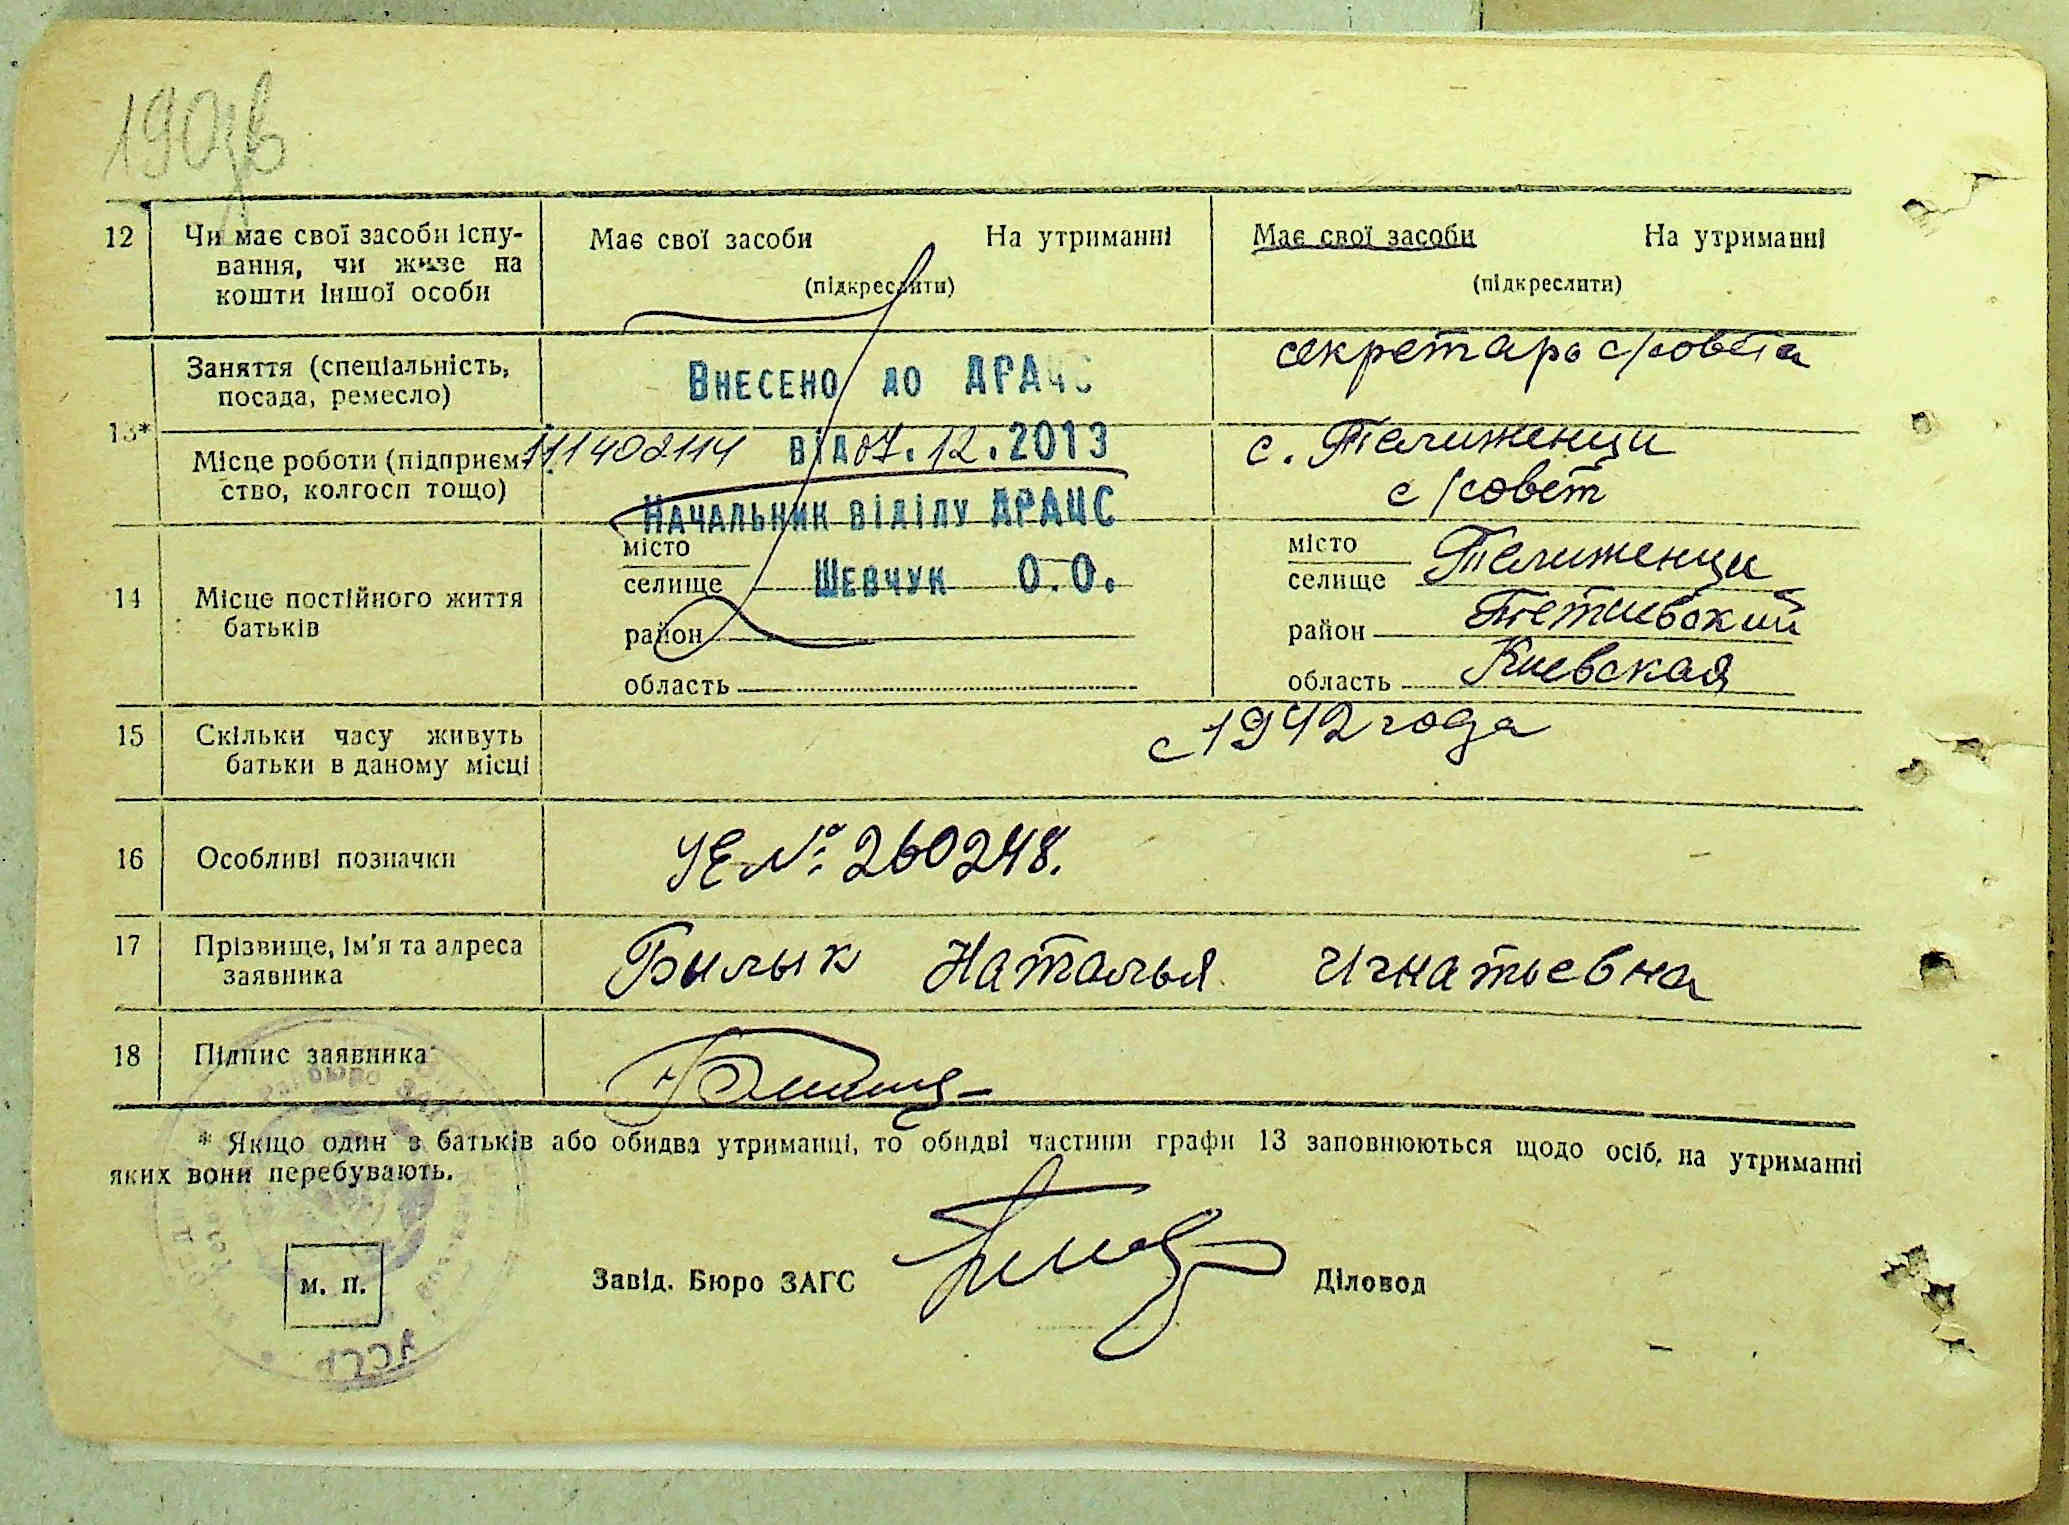 190зв
12 Чи має свої засоби існу-
вання, чи живе на
кошти іншої особи
Має свої засоби На утриманні
(підкреслити)
Має свої засоби На утриманні
(підкреслити)
13*
Заняття (спеціальність,
посада, ремесло)
Внесено до ДРАЦС
секретарь с/совета
Місце роботи (підприєм-
ство, колгосп тощо)
111402114 від 07.12.2013
Начальник відділу ДРАЦС
с. Телиженци
с/совет
14 Місце постійного життя
батьків
місто
селище Шевчук О.О.
район
область
місто
селище Телиженци
район Тетиевский
область Киевская
15 Скільки часу живуть
батьки в даному місці
с 1942 года
16 Особливі позначки
УЕ №: 260248.
17 Прізвище, ім'я та адреса
заявника
Билык Наталья Игнатьевна
18 Підпис заявника
* Якщо один з батьків або обидва утриманці, то обидві частини графи 13 заповнюються щодо осіб, на утриманні
яких вони перебувають.
м. п.
Завід. Бюро ЗАГС
Діловод